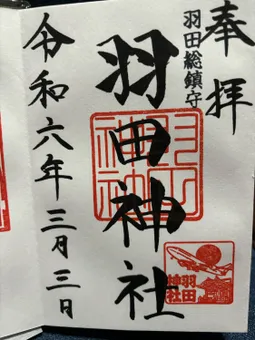 奉拝
羽田総鎮守
羽田神社
令和六年三月三日
羽田神社
羽田
神社